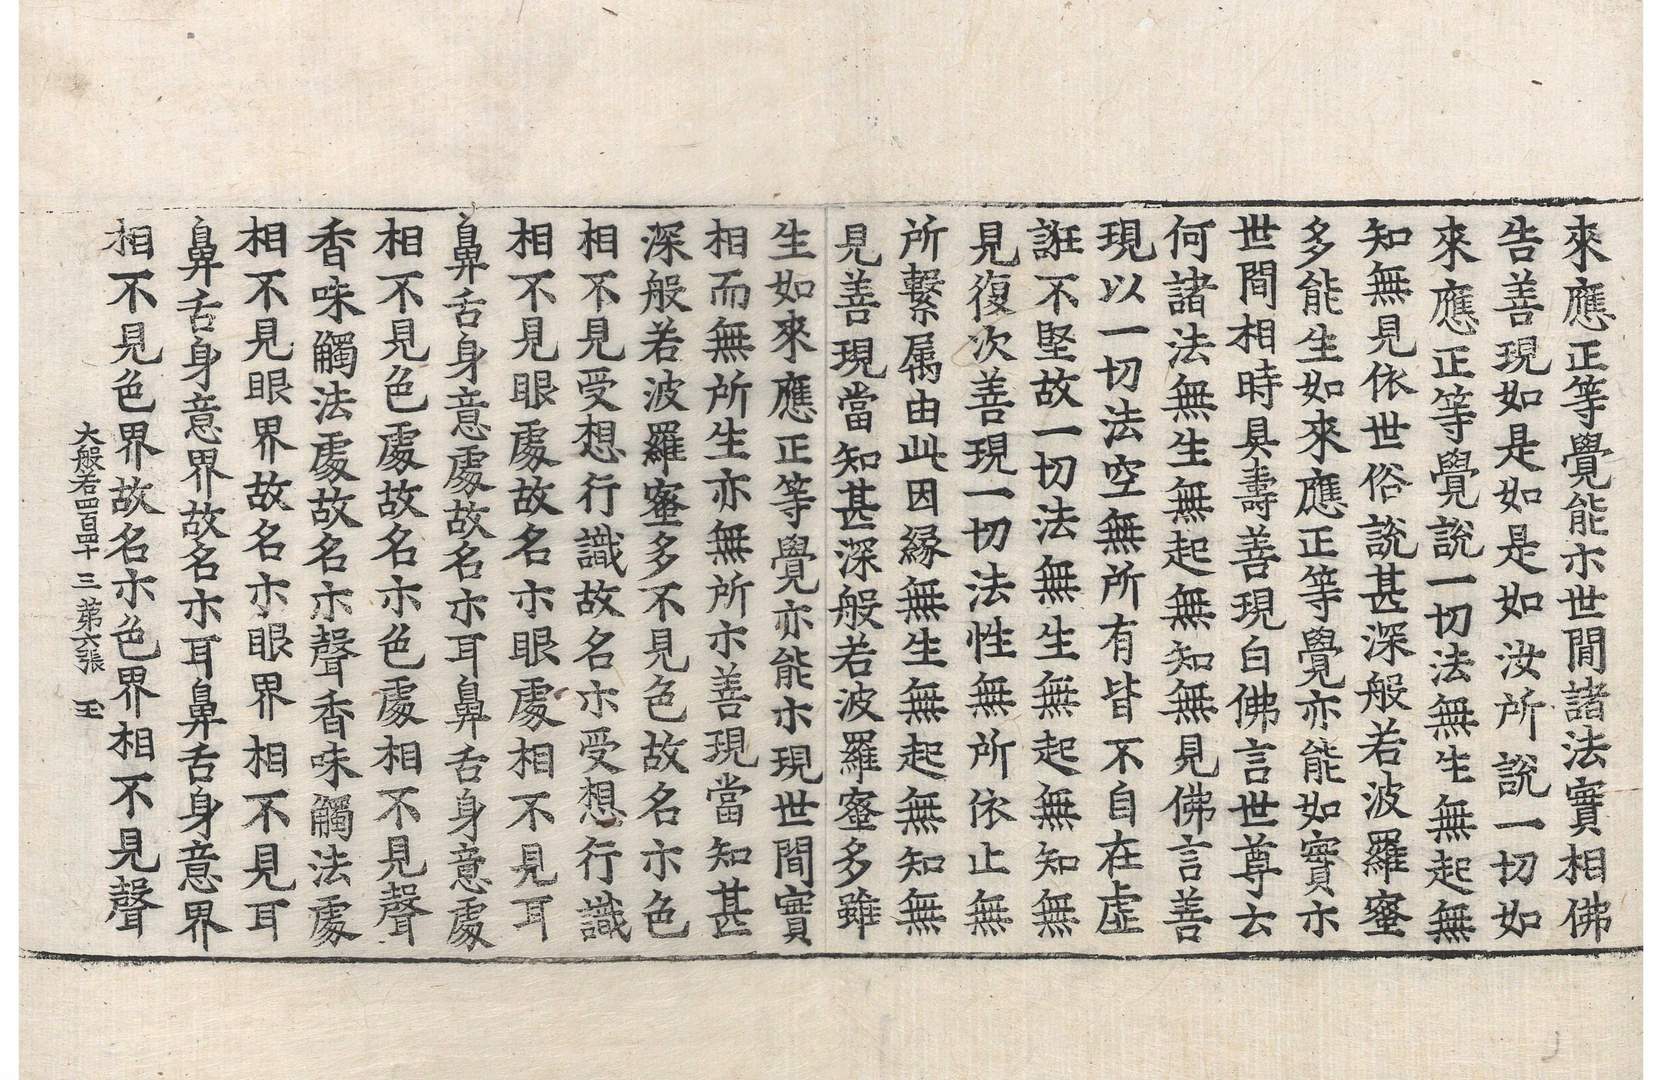 來應正等覺能示世間諸法實相佛
告善現如是如是如汝所說一切如
來應正等覺說一切法無生無起無
知無見依世俗說甚深般若波羅蜜
多能生如來應正等覺亦能如實示
世間相時具壽善現白佛言世尊云
何諸法無生無起無知無見佛言善
現以一切法空無所有皆不自在虛
誑不堅故一切法無生無起無知無
見復次善現一切法性無所依止無
所繫属由此因緣無生無起無知無
見善現當知甚深般若波羅蜜多雖
生如來應正等覺亦能示現世間實
相而無所生亦無所示善現當知甚
深般若波羅蜜多不見色故名示色
相不見受想行識故名示受想行識
相不見眼處故名示眼處相不見耳
鼻舌身意處故名示耳鼻舌身意處
相不見色處故名示色處相不見聲
香味觸法處故名示聲香味觸法處
相不見眼界故名示眼界相不見耳
鼻舌身意界故名示耳鼻舌身意界
相不見色界故名示色界相不見聲
大般若四百四十三 第六張 玉